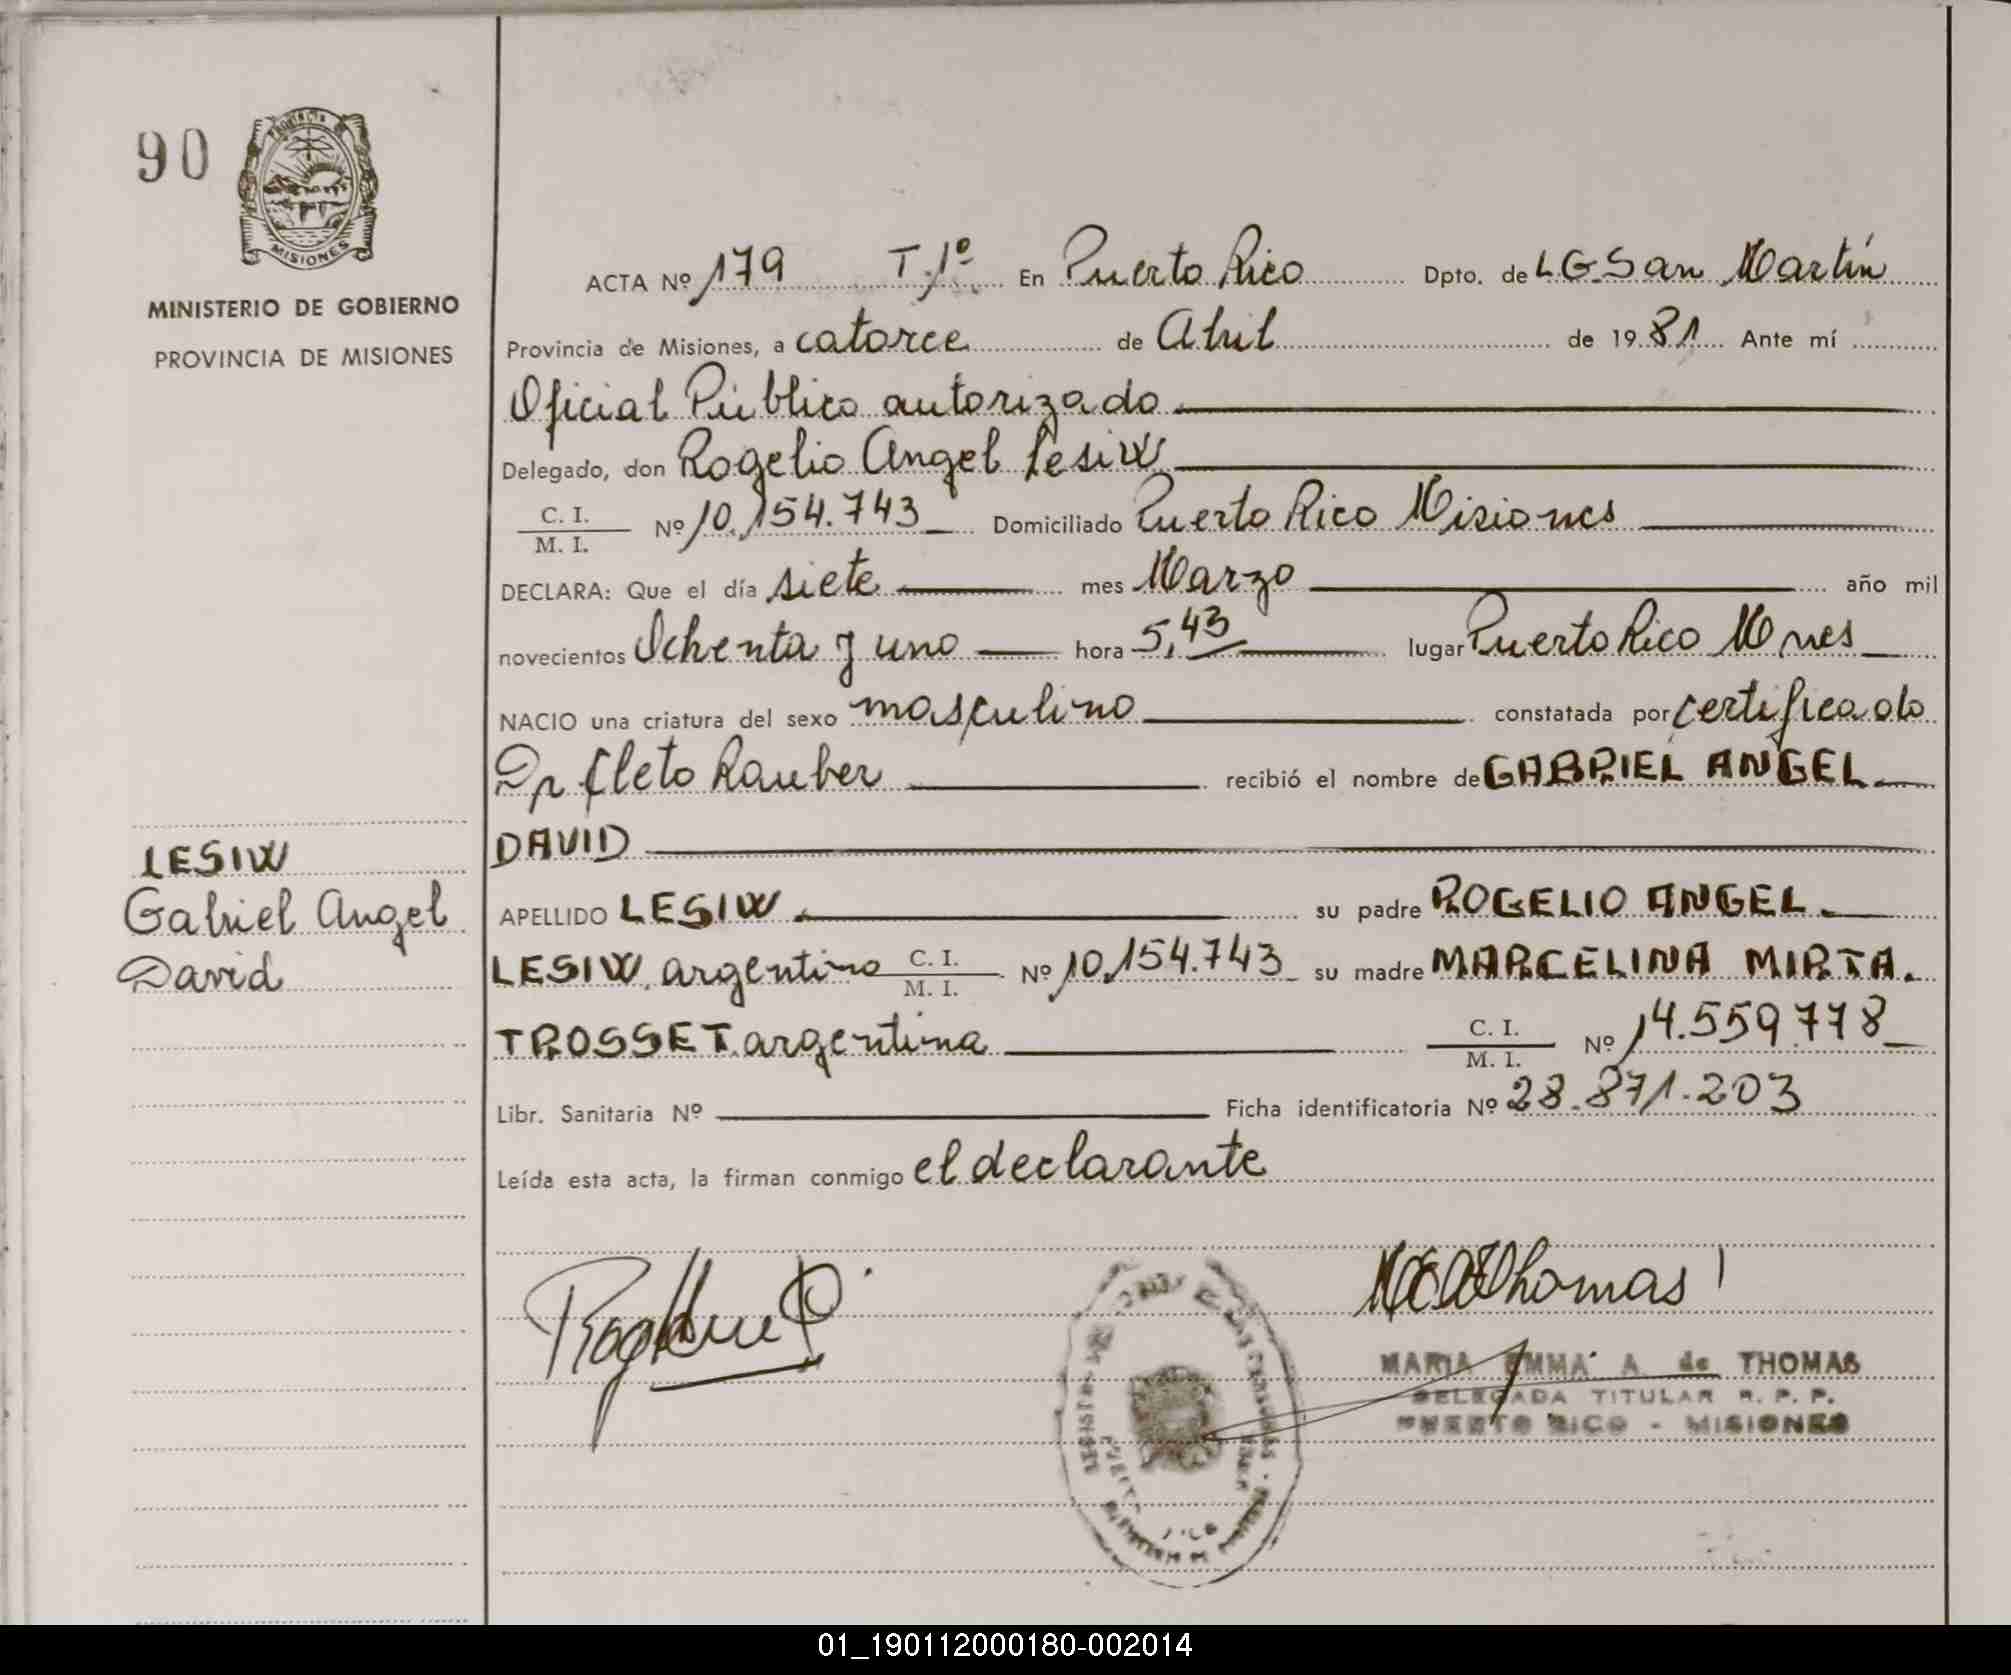 90
PROVINCIA DE
MISIONES
MINISTERIO DE GOBIERNO
PROVINCIA DE MISIONES
LESIW
Gabriel Angel
David
ACTA Nº 179 T.1º En Puerto Rico Dpto. de L G San Martín
Provincia de Misiones, a catorce de Abril de 19 81 Ante mí
Oficial Público autorizado
Delegado, don Rogelio Angel Lesiw
C. I.
M. I. Nº 10.154.743 Domiciliado Puerto Rico Misiones
DECLARA: Que el día siete mes Marzo año mil
novecientos Ochenta y uno hora 5,43 lugar Puerto Rico Mnes
NACIO una criatura del sexo masculino constatada por certificado
Dr Cleto Rauber recibió el nombre de GABRIEL ANGEL
DAVID
APELLIDO LESIW su padre ROGELIO ANGEL
LESIW argentino C. I. M. I. Nº 10.154.743 su madre MARCELINA MIRTA
TROSSET argentina C. I. M. I. Nº 14.559.778
Libr. Sanitaria Nº Ficha identificatoria Nº 28.871.203
Leída esta acta, la firman conmigo el declarante
Thomas
MARIA EMMA A de THOMAS
DELEGADA TITULAR R. P. P.
PUERTO RICO - MISIONES
01_190112000180-002014